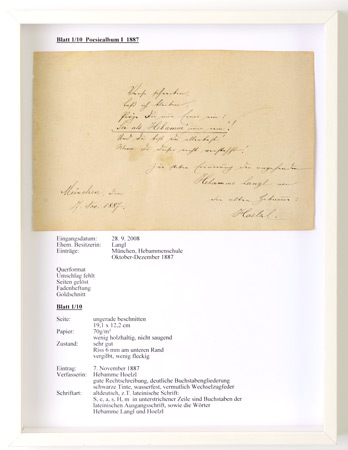 Blatt 1/10  Poesiealbum I  1887
München, den
7. Nov. 1887.
Hebamme Langl von
Hoelzl.
Eingangsdatum: 28. 9. 2008
Ehem. Besitzerin: Langl
Einträge: München, Hebammenschule
Oktober-Dezember 1887
Querformat
Umschlag fehlt
Seiten gelöst
Fadenheftung
Goldschnitt
Blatt 1/10
Seite: ungerade beschnitten
19,1 x 12,2 cm
Papier: 70g/m²
wenig holzhaltig, nicht saugend
Zustand: sehr gut
Riss 6 mm am unteren Rand
vergilbt, wenig fleckig
Eintrag: 7. November 1887
Verfasserin: Hebamme Hoelzl
gute Rechtschreibung, deutliche Buchstabengliederung
schwarze Tinte, wasserfest, vermutlich Wechselzugfeder
Schriftart: altdeutsch, z.T. lateinische Schrift:
S, e, a, s, H, m in unterstrichener Zeile sind Buchstaben der
lateinischen Ausgangsschrift, sowie die Wörter
Hebamme Langl und Hoelzl